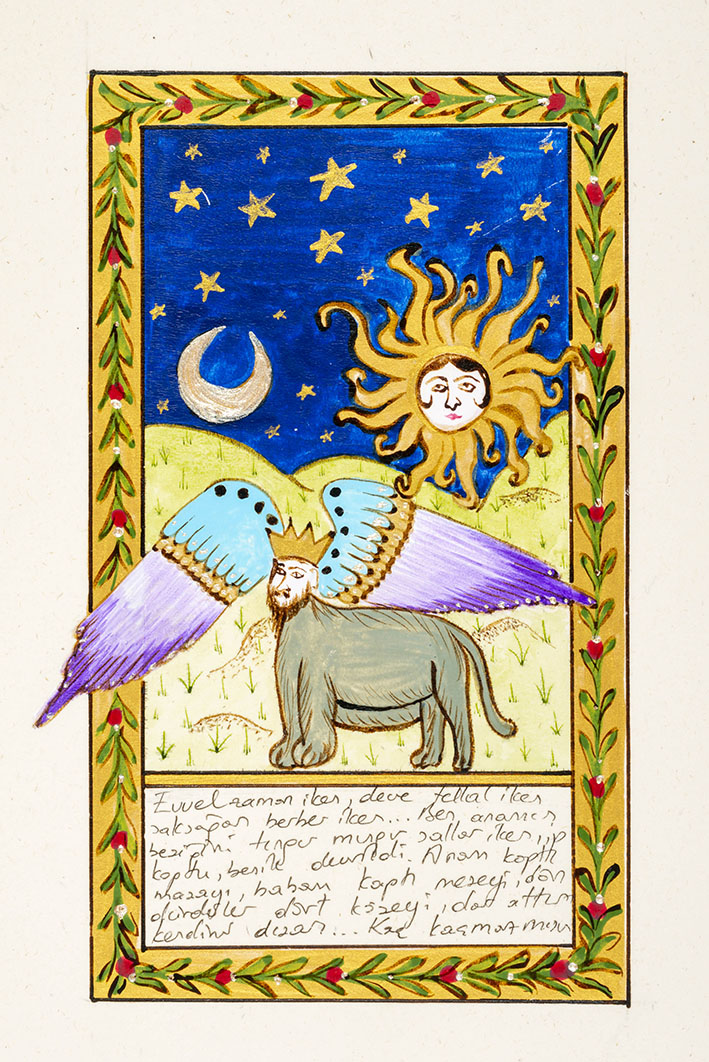 Evvel zaman iken, deve tellal iken
saksağan berber iken... Ben, anamın
beşiğini tıngır mıngır sallar iken, ip
koptu, beşik devrildi. Anam kaptı
maşayı, babam kaptı meşeyi, dön
dürdüler dört köşeyi, dar attım
kendimi dışarı... Kaç kaçmaz mısın